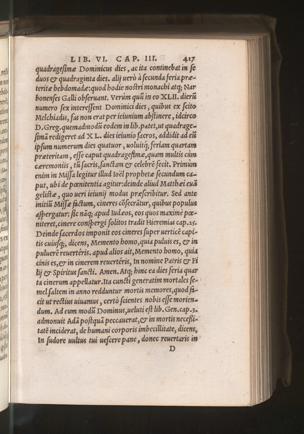 LIB. VI. CAP. III. 417
quadragesimæ Dominicus dies, ac ita continebat in se
duos & quadraginta dies. alij verò à secunda feria præ-
teritæ hebdomadæ: quod hodie nostri monachi atq; Nar
bonenses Galli obseruant. Verùm quū in eo XLII. dierū
numero sex interessent Dominici dies, quibus ex scito
Melchiadis, fas non erat per ieiunium abstinere, idcirco
D. Greg. quemadmodū eodem in lib. patet, ut quadrage-
simā redigeret ad XL. dies ieiunio sacros, addidit ad eū
ipsum numerum dies quatuor, uoluitq; feriam quartam
præteritam, esse caput quadragesimæ, quam multis cùm
cæremonijs, tū sacris, sanctam & celebrē fecit. Primùm
enim in Missa legitur illud Ioël prophetæ secundum ca-
put, ubi de pœnitentia agitur: deinde aliud Matthæi euā
gelistæ, quo ueri ieiunij modus præscribitur. Sed ante
initiū Missæ factum, cineres cōsecrātur, quibus populus
aspergatur: sic nāq; apud Iudæos, eos quos maximè pœ-
niteret, cinere conspergi solitos tradit Hieremias cap. 25.
Deinde sacerdos imponit eos cineres super uerticē capi-
tis cuiusq;, dicens, Memento homo, quia puluis es, & in
puluerē reuerteris. apud alios ait, Memento homo, quia
cinis es, & in cinerem reuerteris, In nomine Patris & Fi
lij & Spiritus sancti. Amen. Atq; hinc ea dies feria quar
ta cinerum appellatur. Ita cuncti generatim mortales se-
mel saltem in anno redduntur mortis memores, quod fa-
cit ut rectius uiuamus, certò scientes nobis esse morien-
dum. Ad eum modū Dominus, ueluti est lib. Gen. cap. 3.
admonuit Adā postquā peccauerat, & in mortis necessi-
tatē inciderat, de humani corporis imbecillitate, dicens,
In sudore uultus tui uescere pane, donec reuertaris in
D